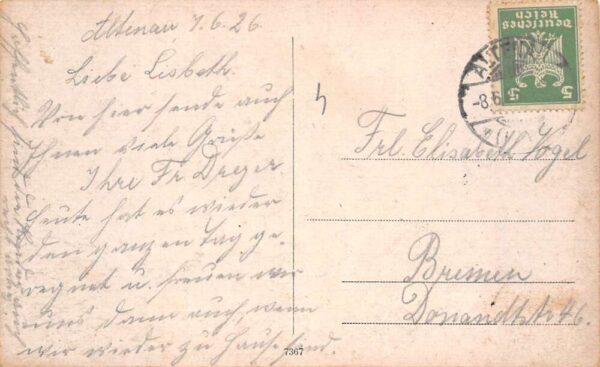 Altenau 7.6.26
Liebe Lisbeth.
Von hier sende auch
Ihnen viele Grüße
Ihre Fr. Dreyer.
heute hat es wieder
den ganzen Tag ge-
regnet u. freuen wir
uns dann auch, wenn
wir wieder zu Hause sind.
Hoffentlich
Deutsches
Reich
5 5
ALTENAU
-8.6
Frl. Elisabeth Vogel
Bremen
Donandtstr. 46.
7367